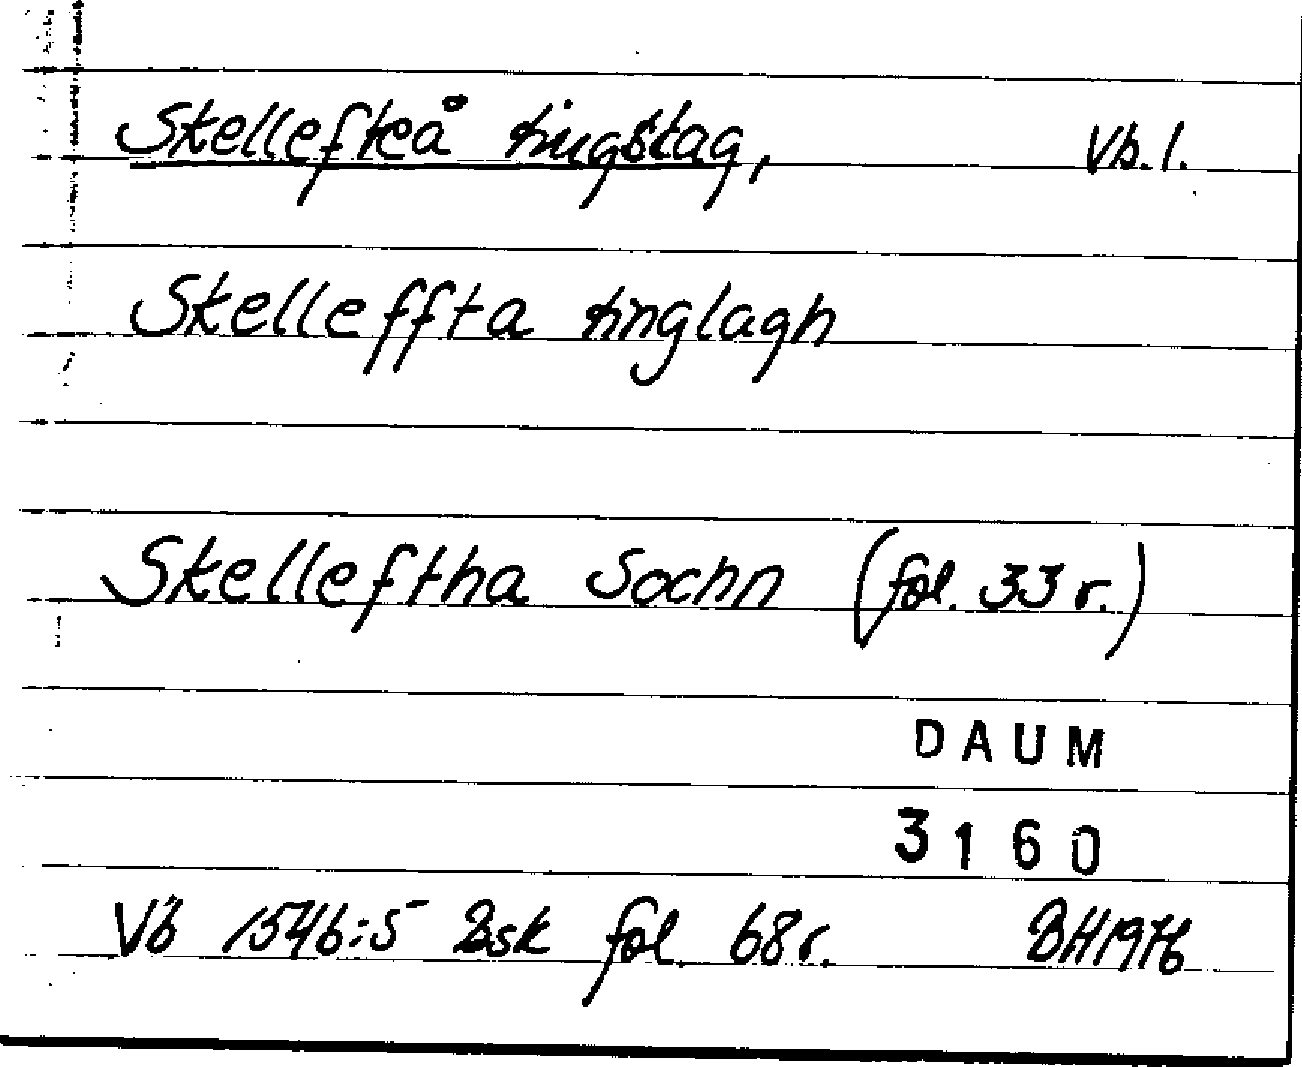 Skellefteå tingslag, Vb. l.
Skelleffta tinglagh
Skelleftha Sochn (fol. 33 r.)
DAUM
3160
Vb 1546:5 Bsk fol. 68 r. BH 1976